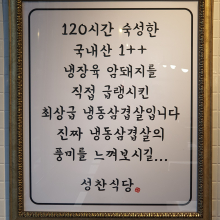 120시간 숙성한
국내산 1++
냉장육 암돼지를
직접 급랭시킨
최상급 냉동삼겹살입니다
진짜 냉동삼겹살의
풍미를 느껴보시길...
성찬식당